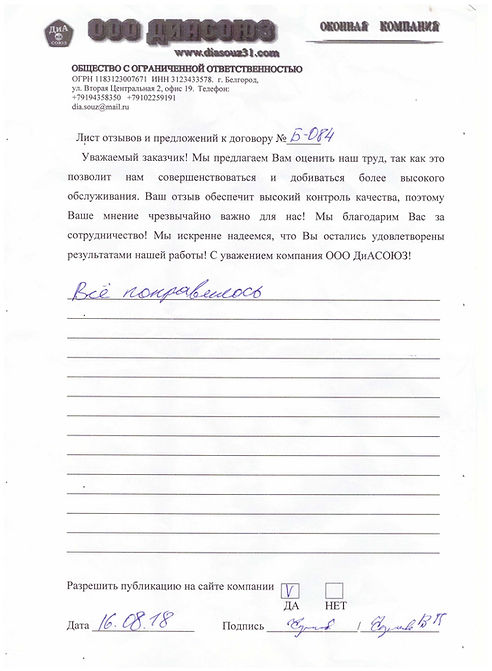 ДиА
СОЮЗ
ООО ДИАСОЮЗ
ОКОННАЯ КОМПАНИЯ
www.diasouz31.com
ОБЩЕСТВО С ОГРАНИЧЕННОЙ ОТВЕТСТВЕННОСТЬЮ
ОГРН 1183123007671 ИНН 3123433578. г. Белгород,
ул. Вторая Центральная 2, офис 19. Телефон:
+79194358350 +79102259191
dia.souz@mail.ru
Лист отзывов и предложений к договору № Б-084
Уважаемый заказчик! Мы предлагаем Вам оценить наш труд, так как это
позволит нам совершенствоваться и добиваться более высокого
обслуживания. Ваш отзыв обеспечит высокий контроль качества, поэтому
Ваше мнение чрезвычайно важно для нас! Мы благодарим Вас за
сотрудничество! Мы искренне надеемся, что Вы остались удовлетворены
результатами нашей работы! С уважением компания ООО ДиАСОЮЗ!
Всё понравилось
Разрешить публикацию на сайте компании V
ДА НЕТ
Дата 16.08.18 Подпись /